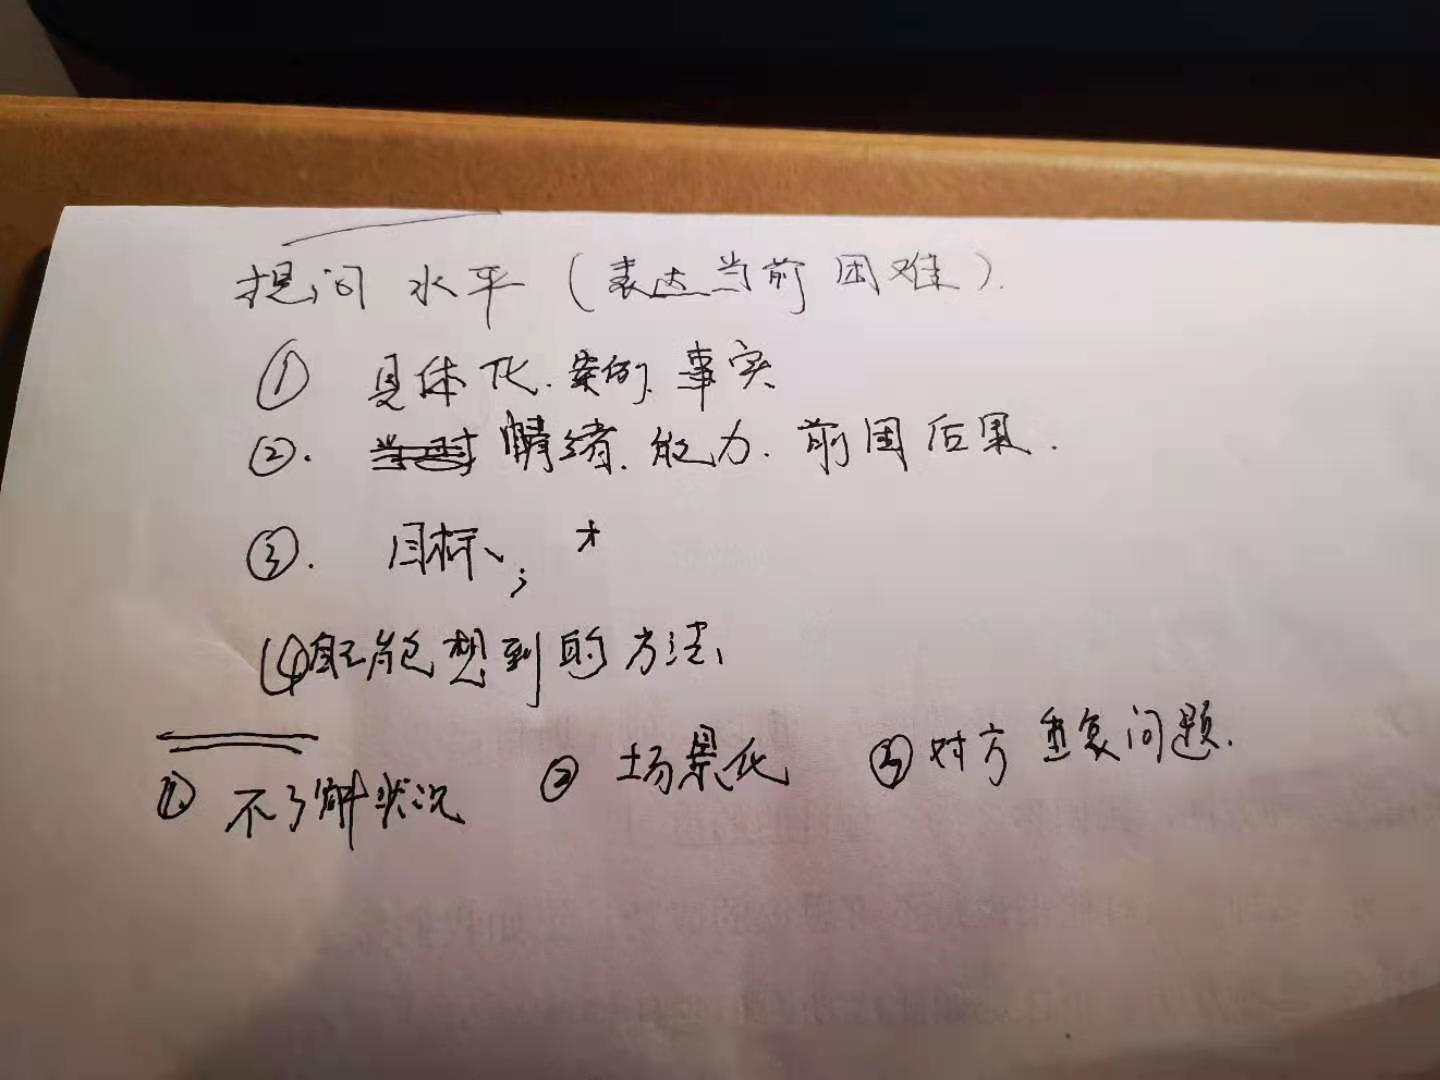 提问水平(表达当前困难).
① 具体化.案例.事实
②. 情绪.能力.前因后果.
③. 目标、;
④自己能想到的方法、
① 不了解状况 ② 场景化 ③ 对方重复问题.